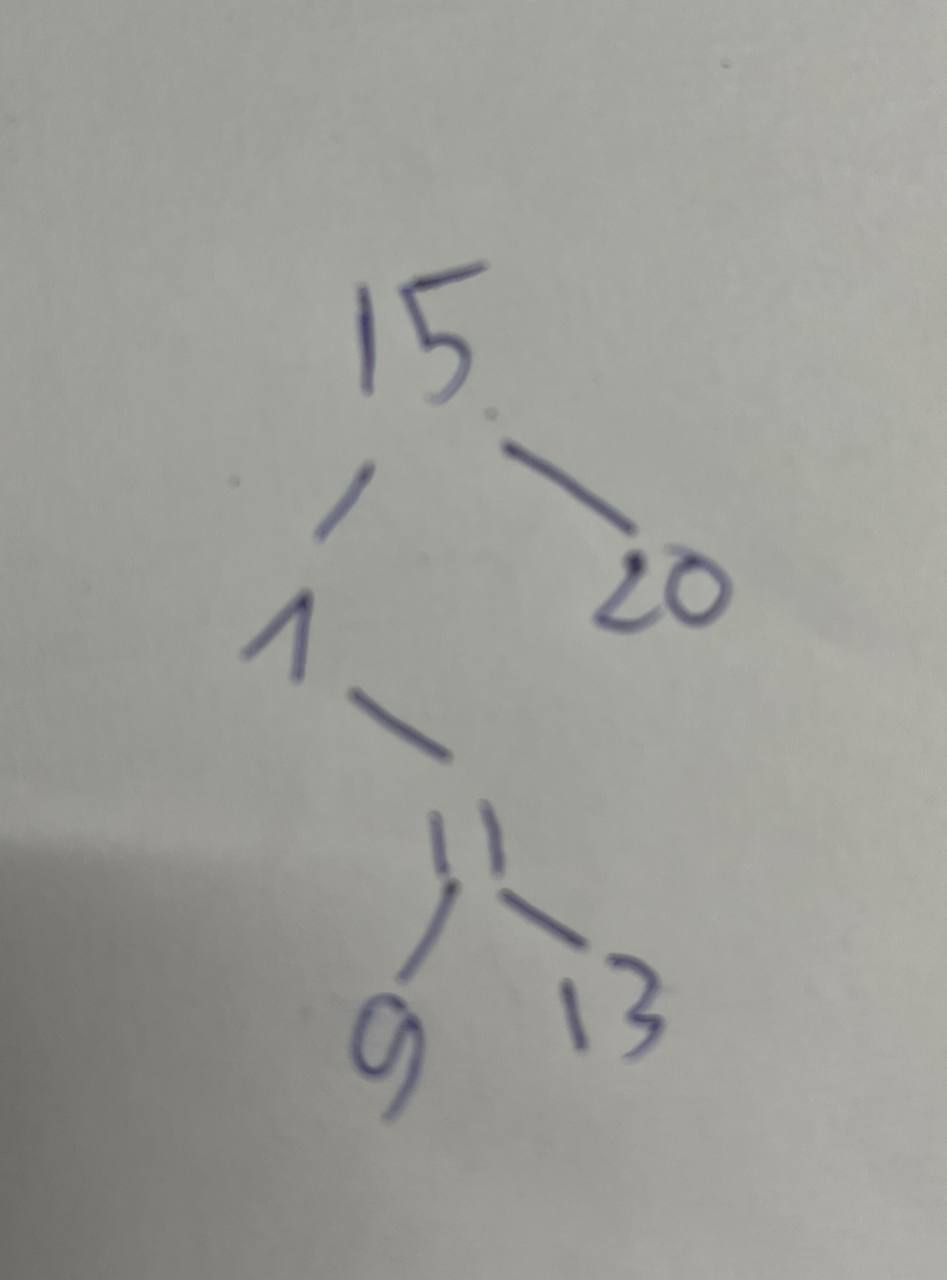 15
1 20
11
9 13